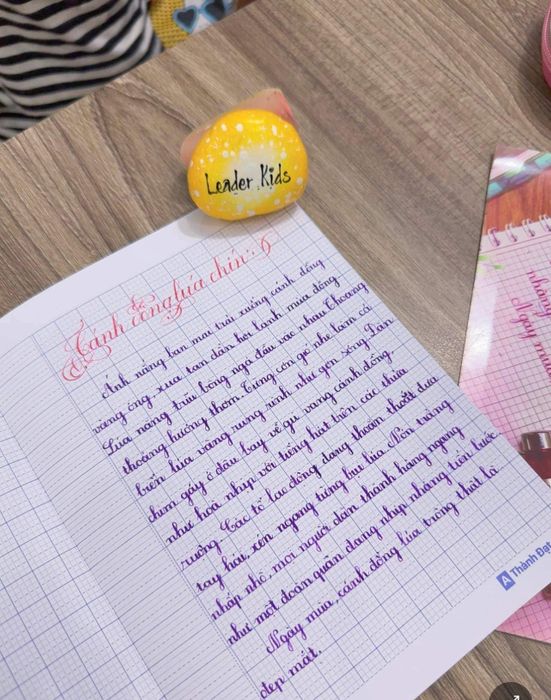 Leader Kids
Cánh đồng lúa chín
Ánh nắng ban mai trải xuống cánh đồng
vàng óng, xua tan dần hơi lạnh mùa đông
Lúa nặng trĩu bông ngả đầu vào nhau thoang
thoảng hương thơm. Từng cơn gió nhẹ làm cả
biển lúa vàng rung rinh như gợn sóng. Đàn
chim gáy ở đâu bay về gù vang cánh đồng,
như hoà nhịp với tiếng hát trên các thửa
ruộng. Các tổ lao động đang thoăn thoắt đưa
tay hái, xén ngang từng bụi lúa. Nón trắng
nhấp nhô, mọi người dàn thành hàng ngang
như một đoàn quân đang nhịp nhàng tiến bước.
Ngày mùa, cánh đồng lúa trông thật là
đẹp mắt.
A Thành Đạt
Ngày mùa